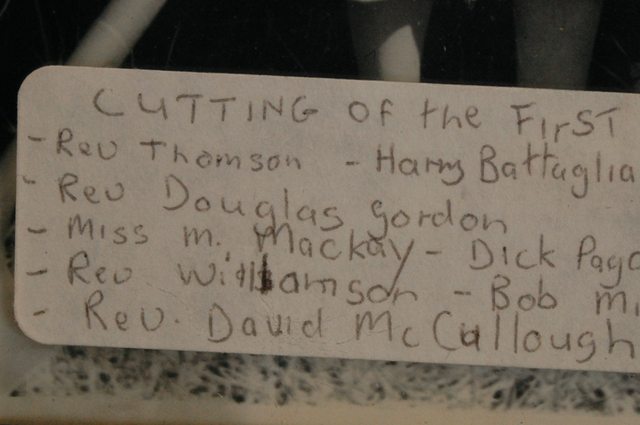 CUTTING of the FIrST
- Rev Thomson - Harry Battaglia
- Rev Douglas gordon
- Miss m. Mackay - Dick
- Rev Williamson - Bob
- Rev. David McCullough